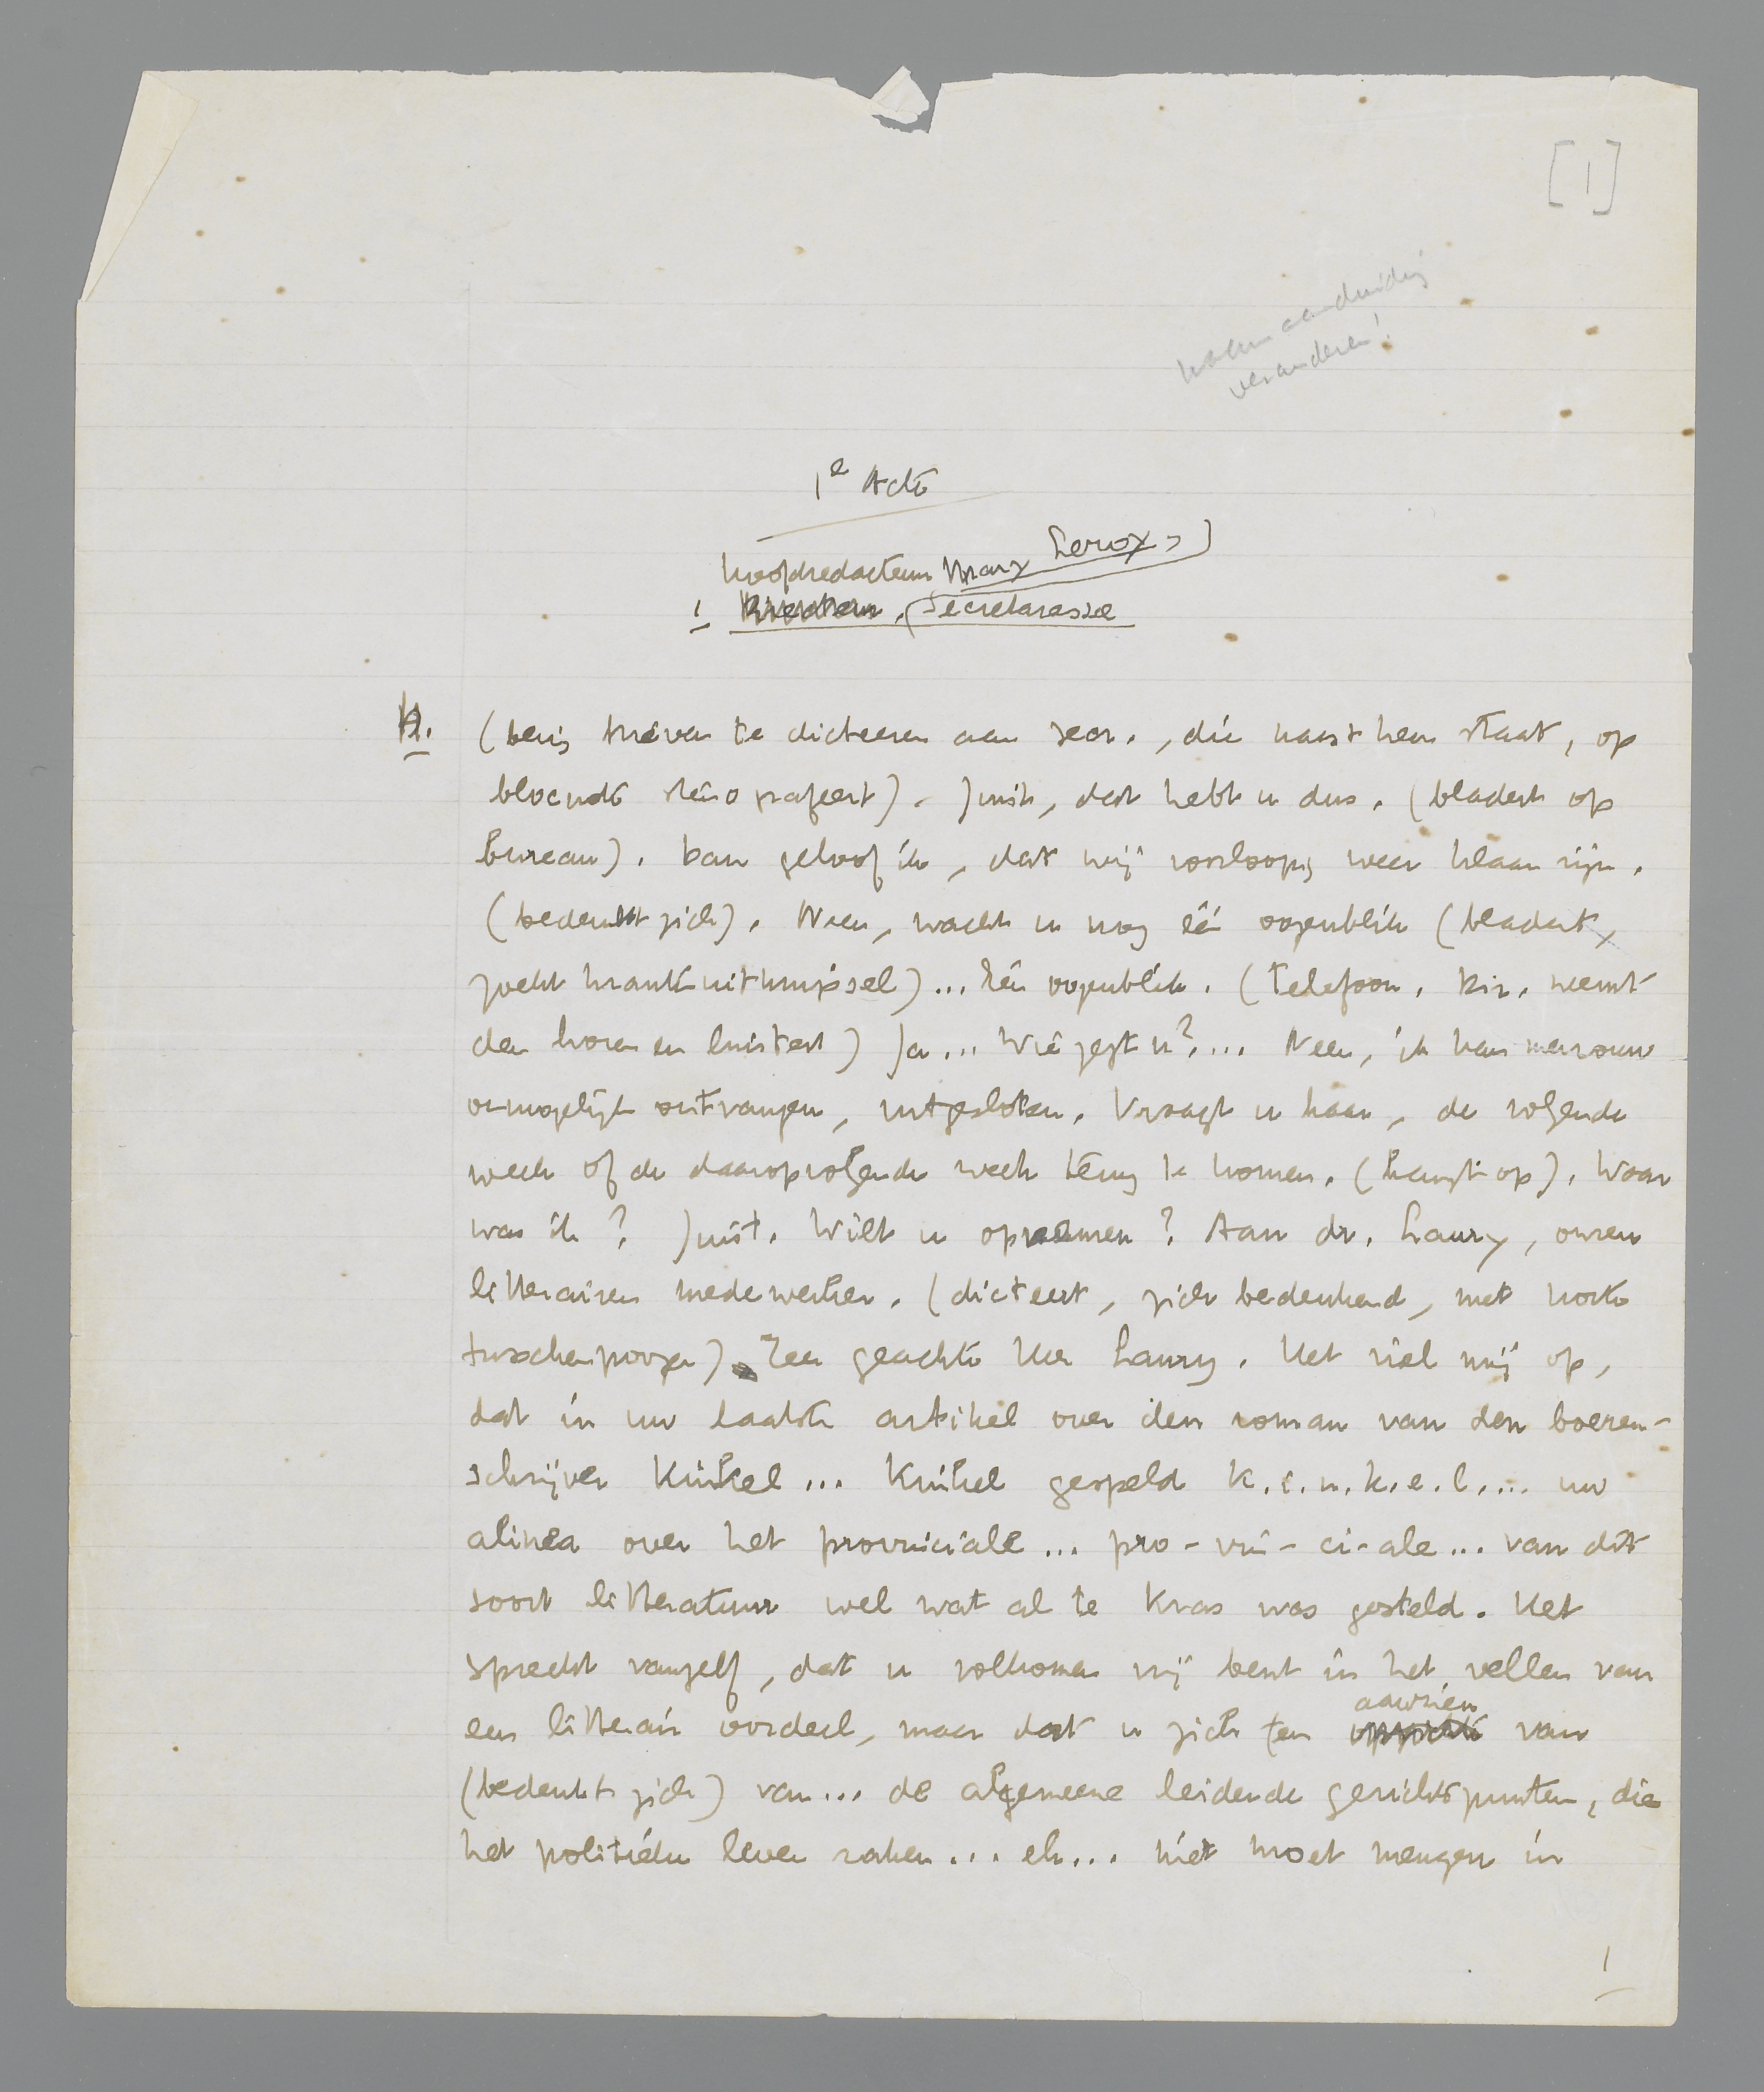 [1]
naam aanduiding
veranderen!
1e Acte
Hoofdredacteur Mary Leroy,
1 Secretaresse
H.
(bezig brieven te dicteeren aan secr., die naast hem staat, op
blocnote stenografeert). Juist, dat hebt u dus. (bladert op
bureau). Dan geloof ik, dat wij voorloopig weer klaar zijn.
(bedenkt zich). Neen, wacht u nog één oogenblik (bladert,
zoekt krantenuitknipsel)... Eén oogenblik. (Telefoon. Rir. neemt
den horen en luistert) Ja... Wie zegt u?.... Neen, ik kan mevrouw
onmogelijk ontvangen, uitgesloten. Vraagt u haar, de volgende
week of de daaropvolgende week terug te komen. (hangt op). Waar
was ik? Juist. Wilt u opnemen? Aan dr. Laury, onzen
litterairen medewerker. (dicteert, zich bedenkend, met korte
tusschenpoozen) Zeer geachte Heer Laury. Het viel mij op,
dat in uw laatste artikel over den roman van den boeren-
schrijver Kinkel... Kinkel gespeld k.i.n.k.e.l.... uw
alinea over het provinciale... pro-vin-ci-ale... van dit
soort litteratuur wel wat al te kras was gesteld. Het
spreekt vanzelf, dat u volkomen vrij bent in het vellen van
een litterair oordeel, maar dat u zich ten aanzien van
(bedenkt zich) van... de algemeene leidende gezichtspunten, die
het politieke leven raken... eh... niet moet mengen in
1